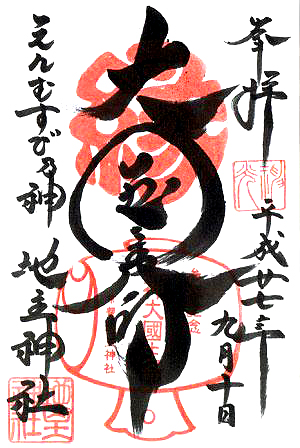 奉拝
平成廿七年
九月十日
大国主命
えんむすび乃神
地主神社
地主
神社